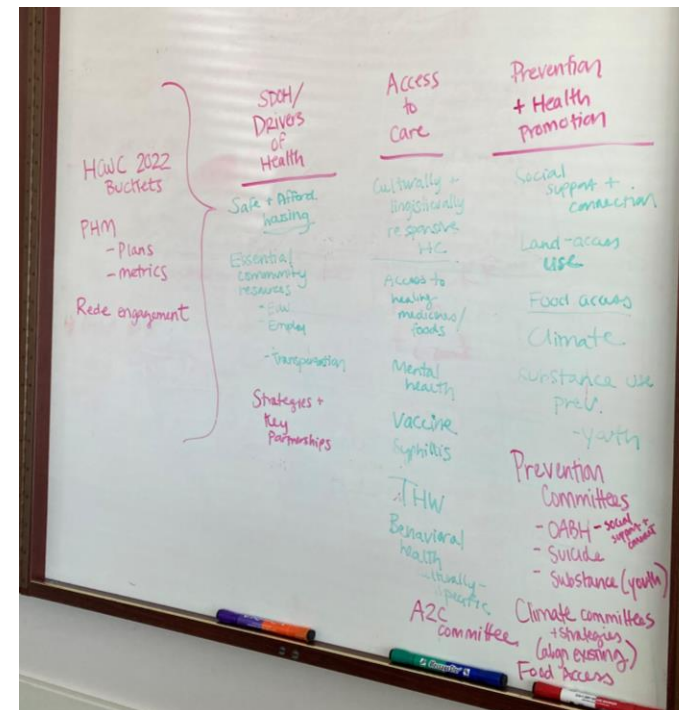 HCWC 2022
Buckets
PHM
- Plans
- metrics
Rede engagement
SDOH/
Drivers
of
Health
Safe + Afford.
housing
Essential
community
resources
- Edu.
- Employ
- transportation
Strategies +
Key
Partnerships
Access
to
Care
Culturally +
linguistically
responsive
HC
Access to
healing
medicines/
foods
Mental
health
Vaccine
Syphillis
THW
Behavioral
health
specific
A2C
committee
Prevention
+ Health
Promotion
Social
support +
connection
Land-access
use
Food access
Climate
Substance use
prev.
- youth
Prevention
Committees
- OABH - social
support +
connect
- Suicide
- Substance (youth)
Climate committees
+ strategies
(align existing)
Food Access